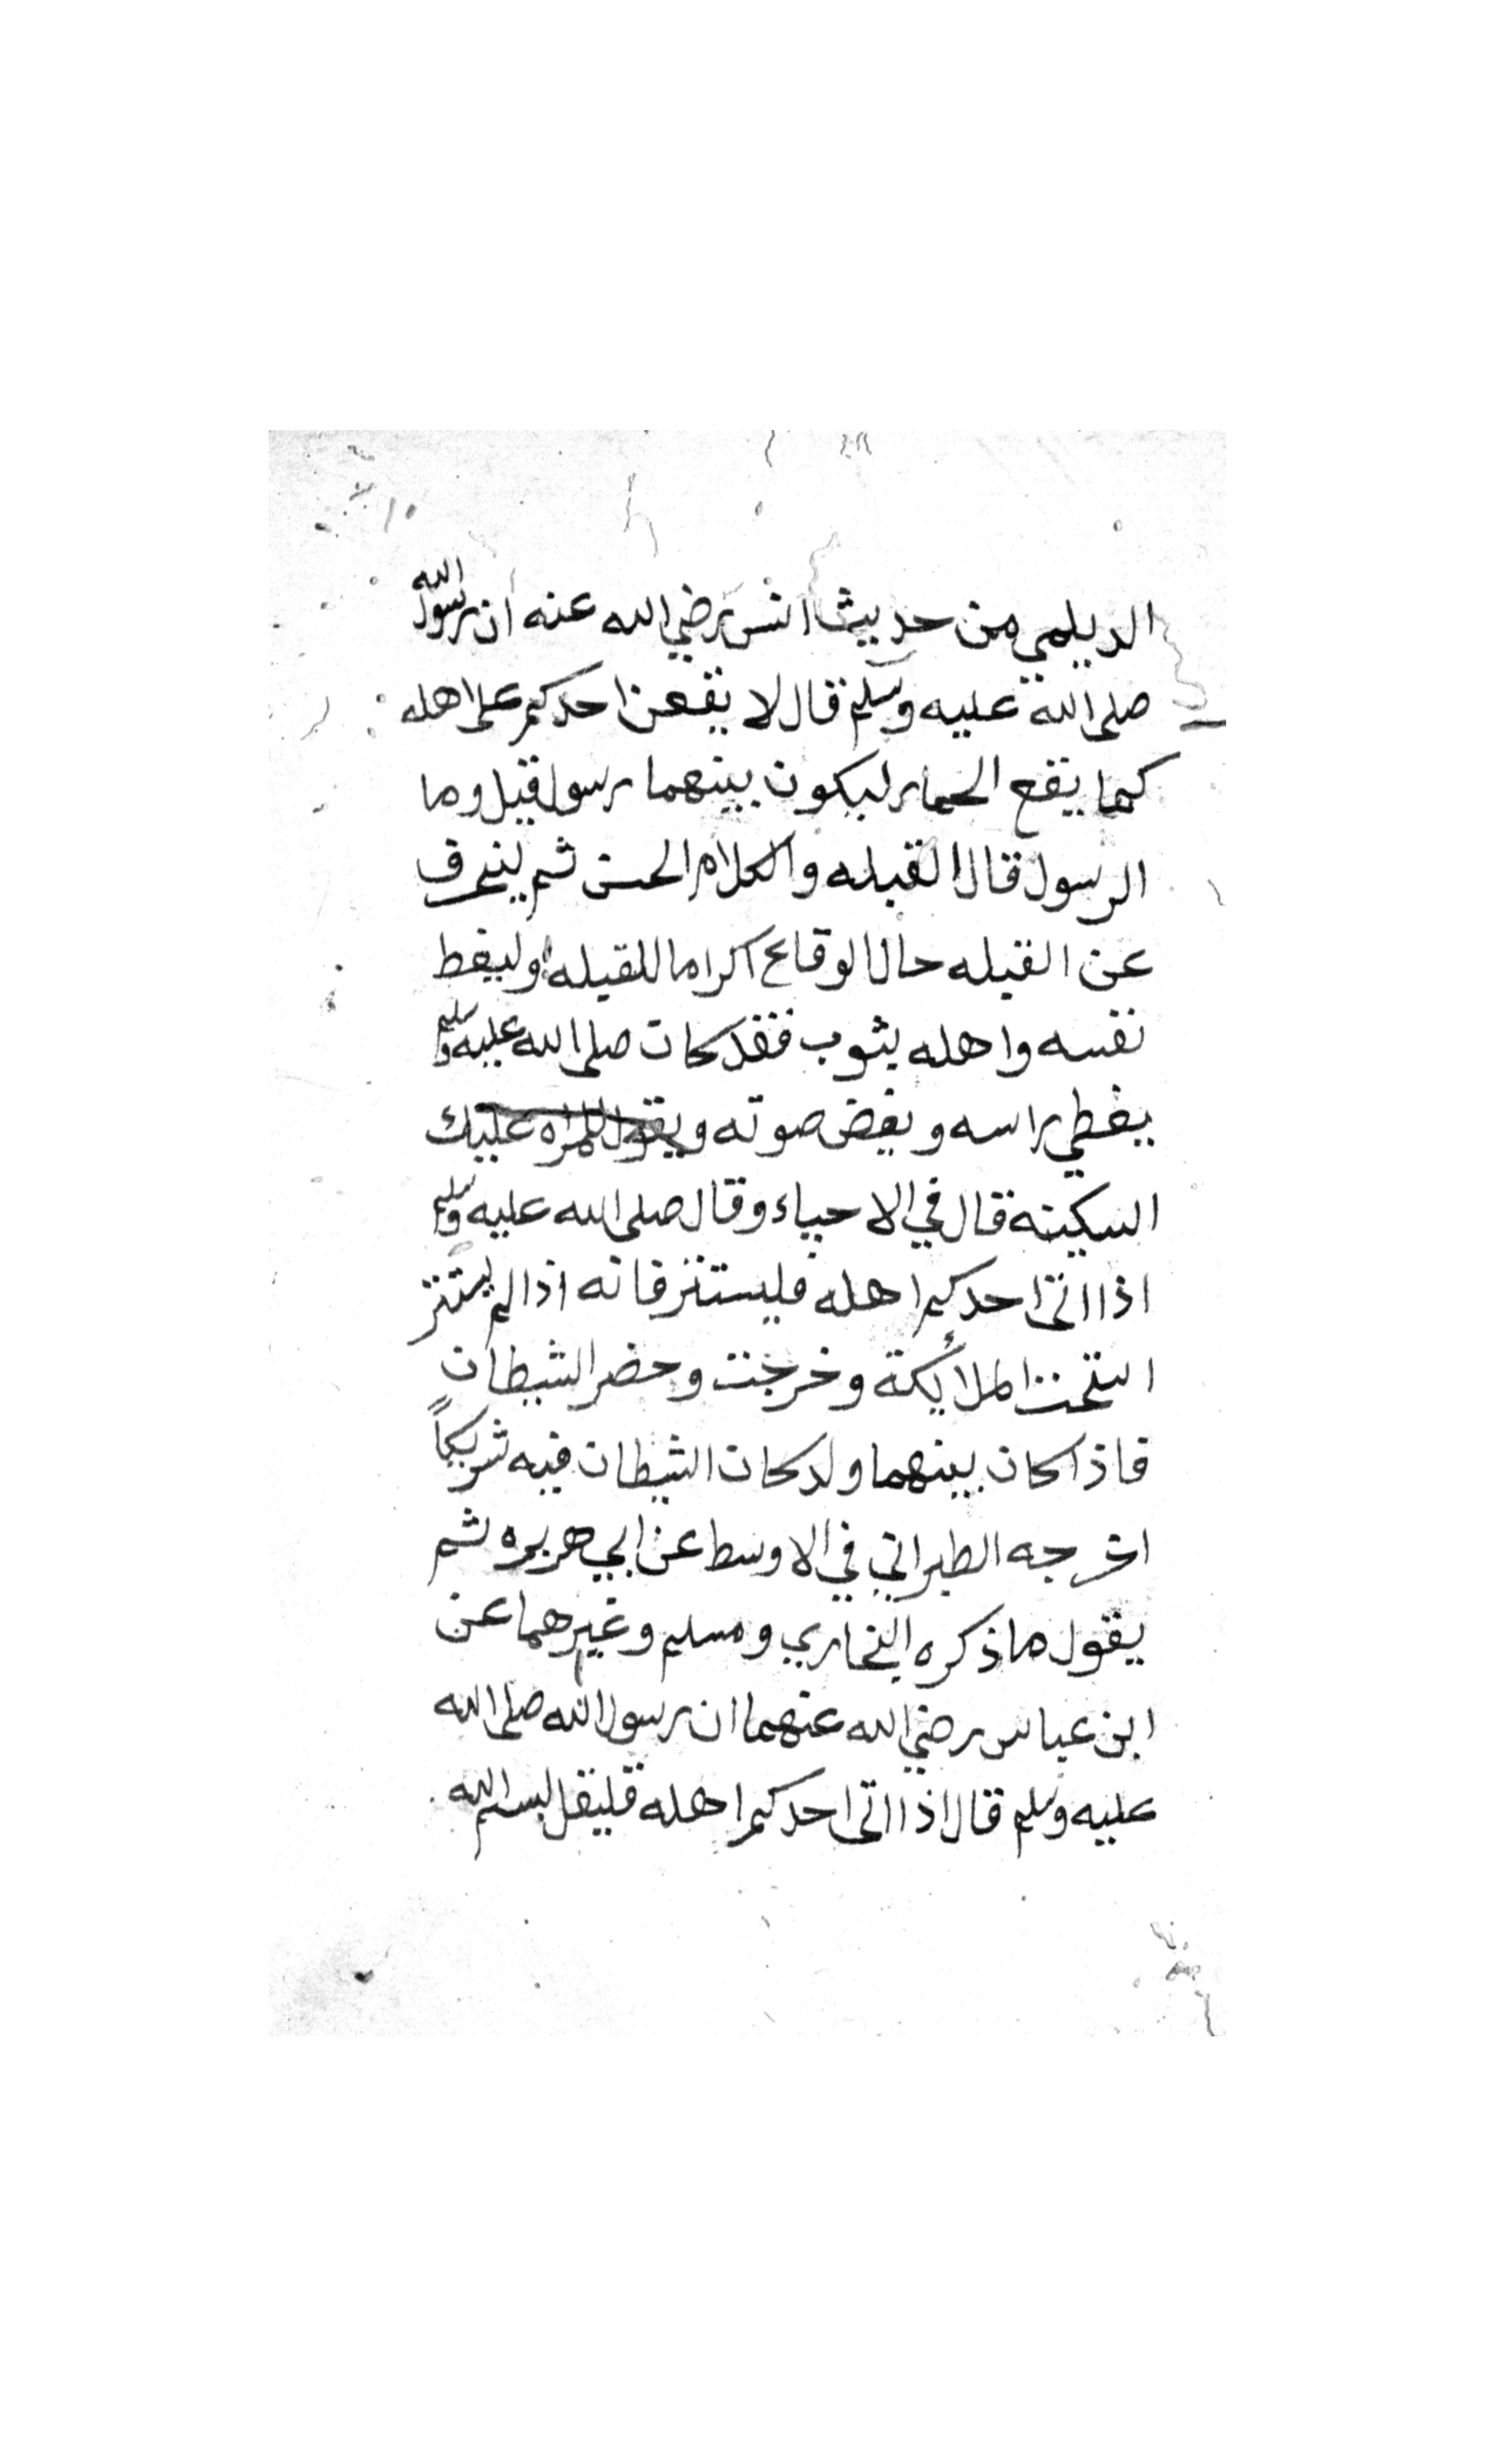 الديلمي من حديث انس رضي الله عنه ان رسول الله
صلى الله عليه وسلم قال لا يقعن احدكم على اهله
كما يقع الحمار ليكون بينهما رسول قيل وما
الرسول قال القبله والكلام الحسن ثم لينحرف
عن القبله حال الوقاع اكراما للقبله وليغط
نفسه واهله بثوب فقد كان صلى الله عليه وسلم
يغطي راسه ويغض صوته ويقول للمراه عليك
السكينة قال في الاحياء وقال صلى الله عليه وسلم
اذا اتى احدكم اهله فليستتر فانه اذا لم يستتر
استحت الملائكة وخرجت وحضر الشيطان
فاذا كان بينهما ولد كان الشيطان فيه شريكاً
اخرجه الطبراني في الاوسط عن ابي هريره ثم
يقول ماذكره البخاري ومسلم وغيرهما عن
ابن عباس رضي الله عنهما ان رسول الله صلى الله
عليه وسلم قال اذا اتى احدكم اهله فليقل بسم الله